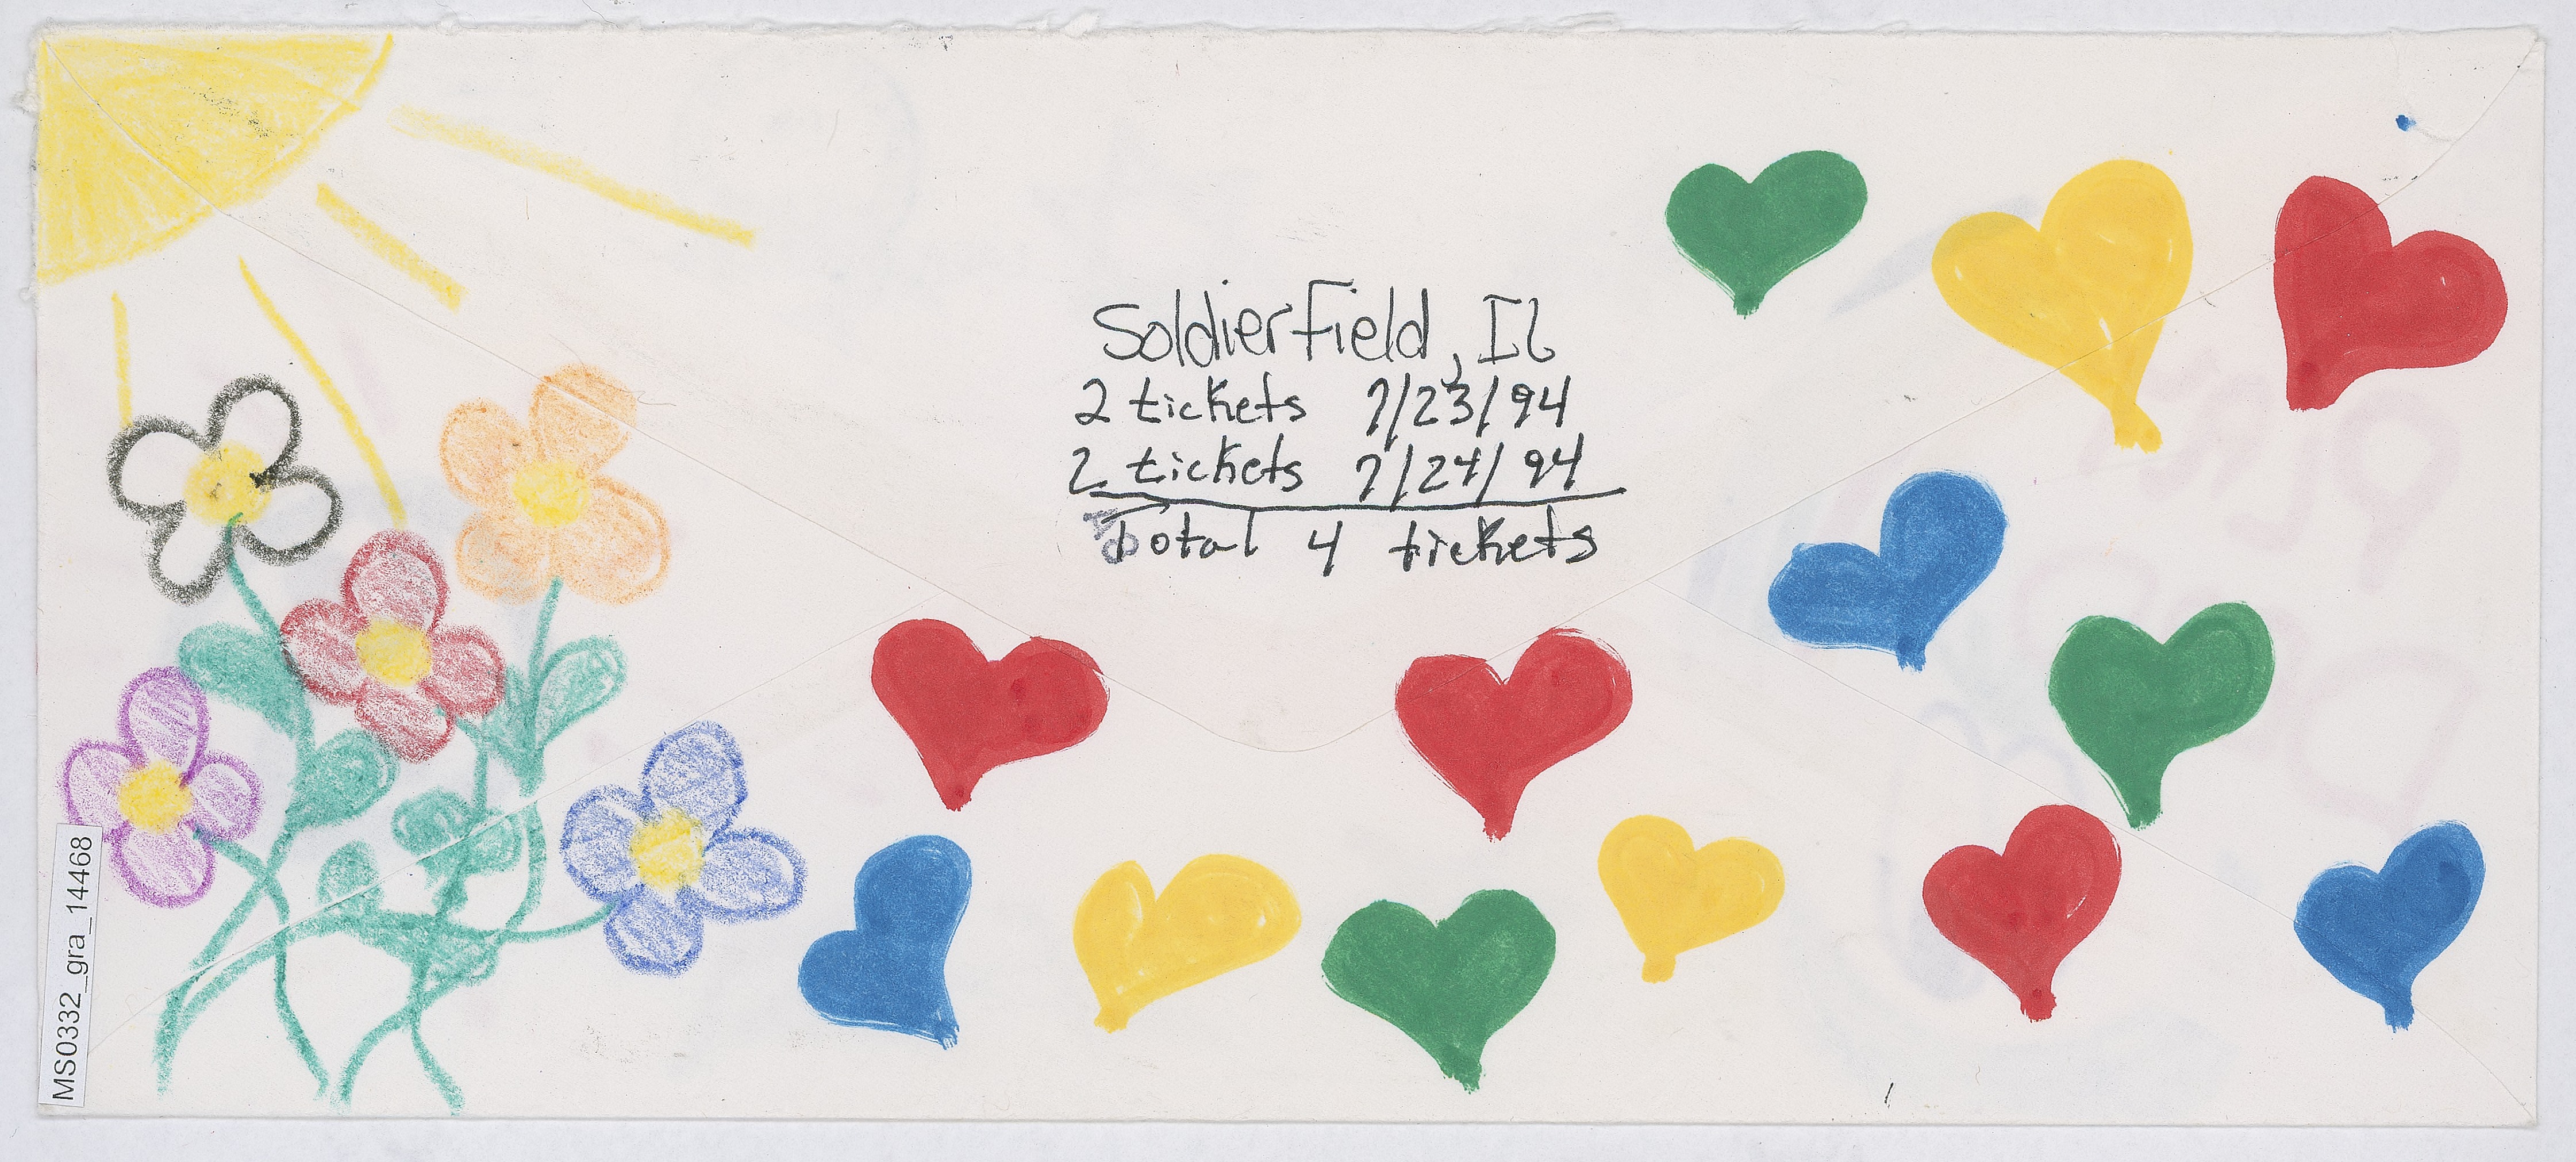 Soldier Field, Il
2 tickets 7/23/94
2 tickets 7/24/94
total 4 tickets
MS0332_gra_14468